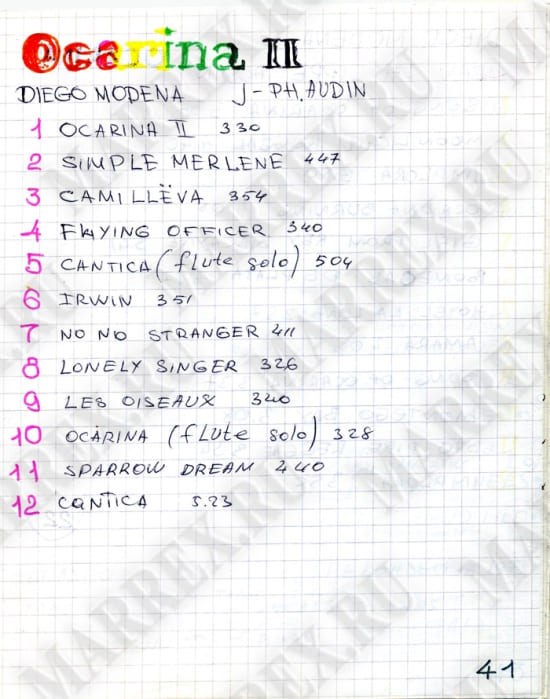 Ocarina II
DIEGO MODENA J-PH. AUDIN
1 OCARINA II 330
2 SIMPLE MERLENE 447
3 CAMILLËVA 354
4 FLYING OFFICER 340
5 CANTICA (flute solo) 504
6 IRWIN 351
7 NO NO STRANGER 411
8 LONELY SINGER 326
9 LES OISEAUX 320
10 OCARINA (flute solo) 328
11 SPARROW DREAM 240
12 CANTICA 5.23
41
MARREX.RU